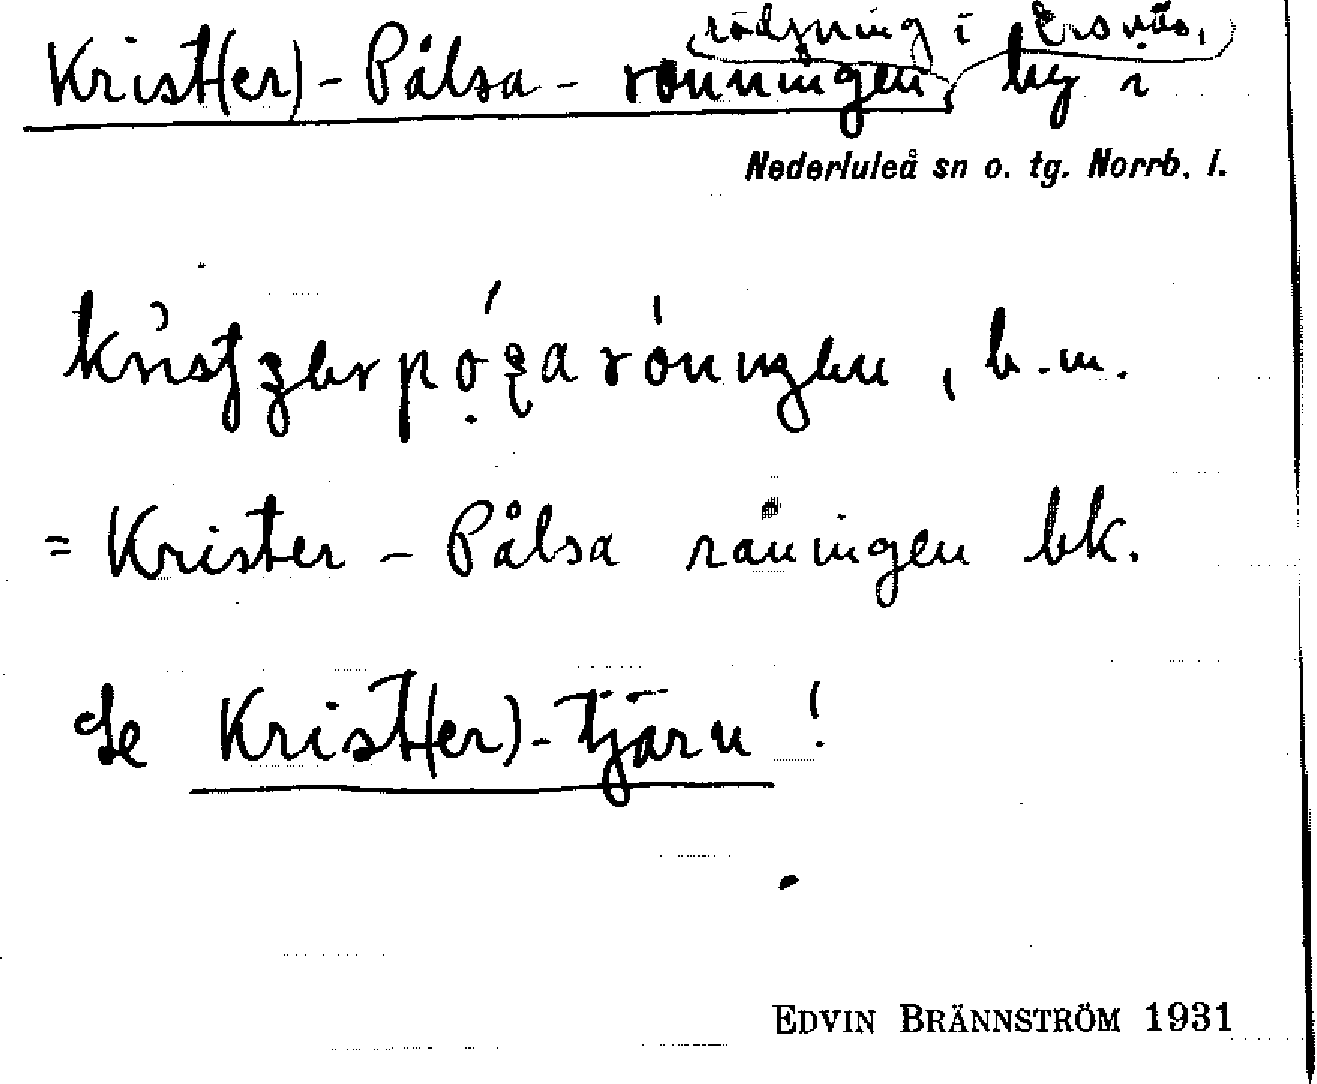 rödjning i Ersnäs,
Krist(er)-Pålsa-rönningen, by i
Nederluleå sn o. tg. Norrb. l.
, b.m.
= Krister-Pålsa räningen bk.
Se Krist(er)-tjärn!
EDVIN BRÄNNSTRÖM 1931